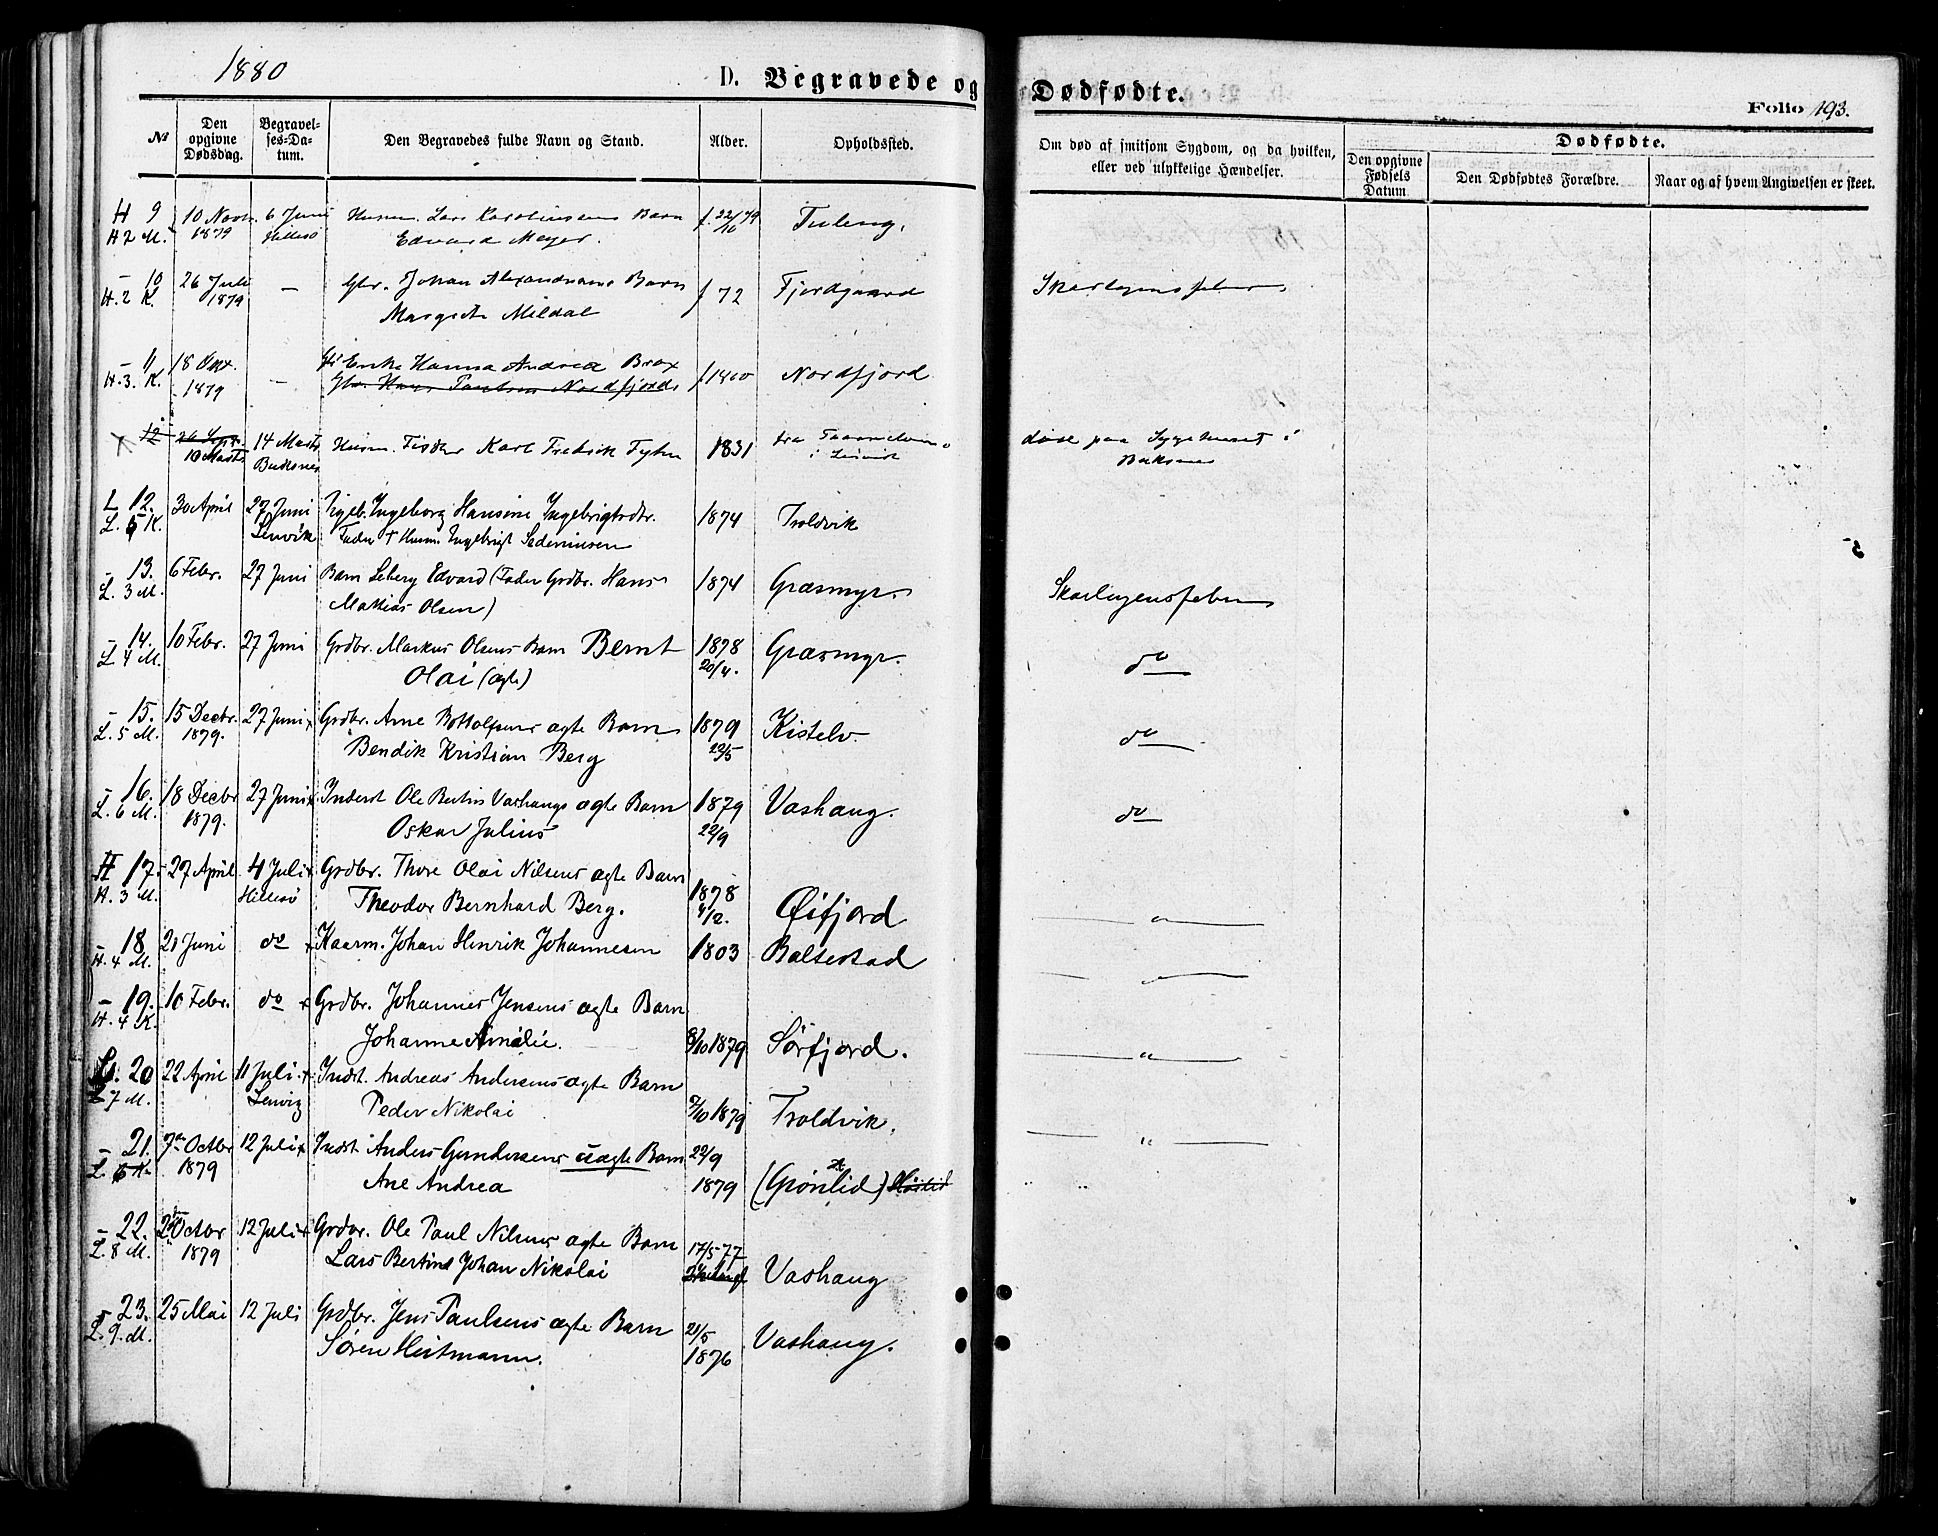 1880
D. Begravede og Dødfødte.
Folio 193.
№
Den opgivne Dødsdag.
Begravelses-Datum.
Den Begravedes fulde Navn og Stand.
Alder.
Opholdssted.
Om død af smitsom Sygdom, og da hvilken, eller ved ulykkelige Hændelser.
Dødfødte.
Den opgivne Fødsels Datum.
Den Dødfødtes Forældre.
Naar og af hvem Angivelsen er skeet.
H 9 10 Novbr 6 Juni Husm. Lars Karolinsens Barn f. 22/10 79 Tuleng.
H 2 M. 1879 Hillesø Edvard Meyer.
- 10 26 Juli - Gbr. Johan Alexandersens Barn f 72 Fjordgaard Skarlagensfeber
H. 2 K. 1879 Margrete Mildal
- 11 18 - Enke Hanna Andrea Brox f 1800 Nordfjord
H. 3. K. 1879 Gbr. Hans Paulsen Nordfjords
12 14 Marts Husm. Fisker Karl Fredrik 1831 fra døde paa Sygehuset i
10 Marts i Lenvik
L 12. 30 April 27 Juni Ingeborg Hansine Ingebrigtsdtr. 1874 Troldvik
L. 5 K. Lenvik Fader † Husm. Ingebrigt
- 13. 6 Febr. 27 Juni Barn Seberg Edvard (Fader Grdbr. Hans 1874 Græsmyr. Skarlagensfeber
L. 3 M. Mathias Olsen)
- 14. 10 Febr. 27 Juni Grdbr. Markus Olsens Barn Bernt 1878 Græsmyr. do
L 4 M. Olai (ægte) 20/4.
- 15. 15 Decbr. 27 Juni x Grdbr. Arne Bottolfsens ægte Barn 1879 Kistelv. do
L. 5 M. 1879. Bendik Kristian Berg 22/5
- 16. 18 Decbr 27 Juni x Inderst Ole Bertins Vashaugs ægte Barn 1879 Vashaug. do
L. 6 M. 1879. Oskar Julius 22/9
H 17. 27 April 4 Juli x Grdbr. Thore Olai Nilsens ægte Barn 1878 Øifjord "
H. 3 M. Hillesø Theodor Bernhard Berg. 4/12.
- 18 21 Juni do x Kaarm. Johan Henrik Johannesen 1803 Baltestad "
H. 4 M.
- 19. 10 Febr. do x Grdbr. Johannes Jensens ægte Barn
H. 4 K. Johanne Amalie. 8/10 1879 Sørfjord. "
L. 20 22 April 11 Juli x Indst. Andreas Andersens ægte Barn
L 7 M. Lenvig Peder Nikolai 7/10 1879 Troldvik. "
- 21. 7de Octbr 12 Juli x Indst Anders Gundersens uægte Barn 22/9
L. 6 K. 1879 Ane Andrea 1879 (Grønlid)
- 22. Octbr 12 Juli x Grdbr. Ole Paul Nilsens ægte Barn 17/5 77
L. 8 M. 1879 Lars Bertin Johan Nikolai Vashaug
- 23. 25 Mai 12 Juli Grdbr. Jens Paulsens ægte Barn 21/5
L. 9. M. Søren Heitmann. 1876 Vashaug.